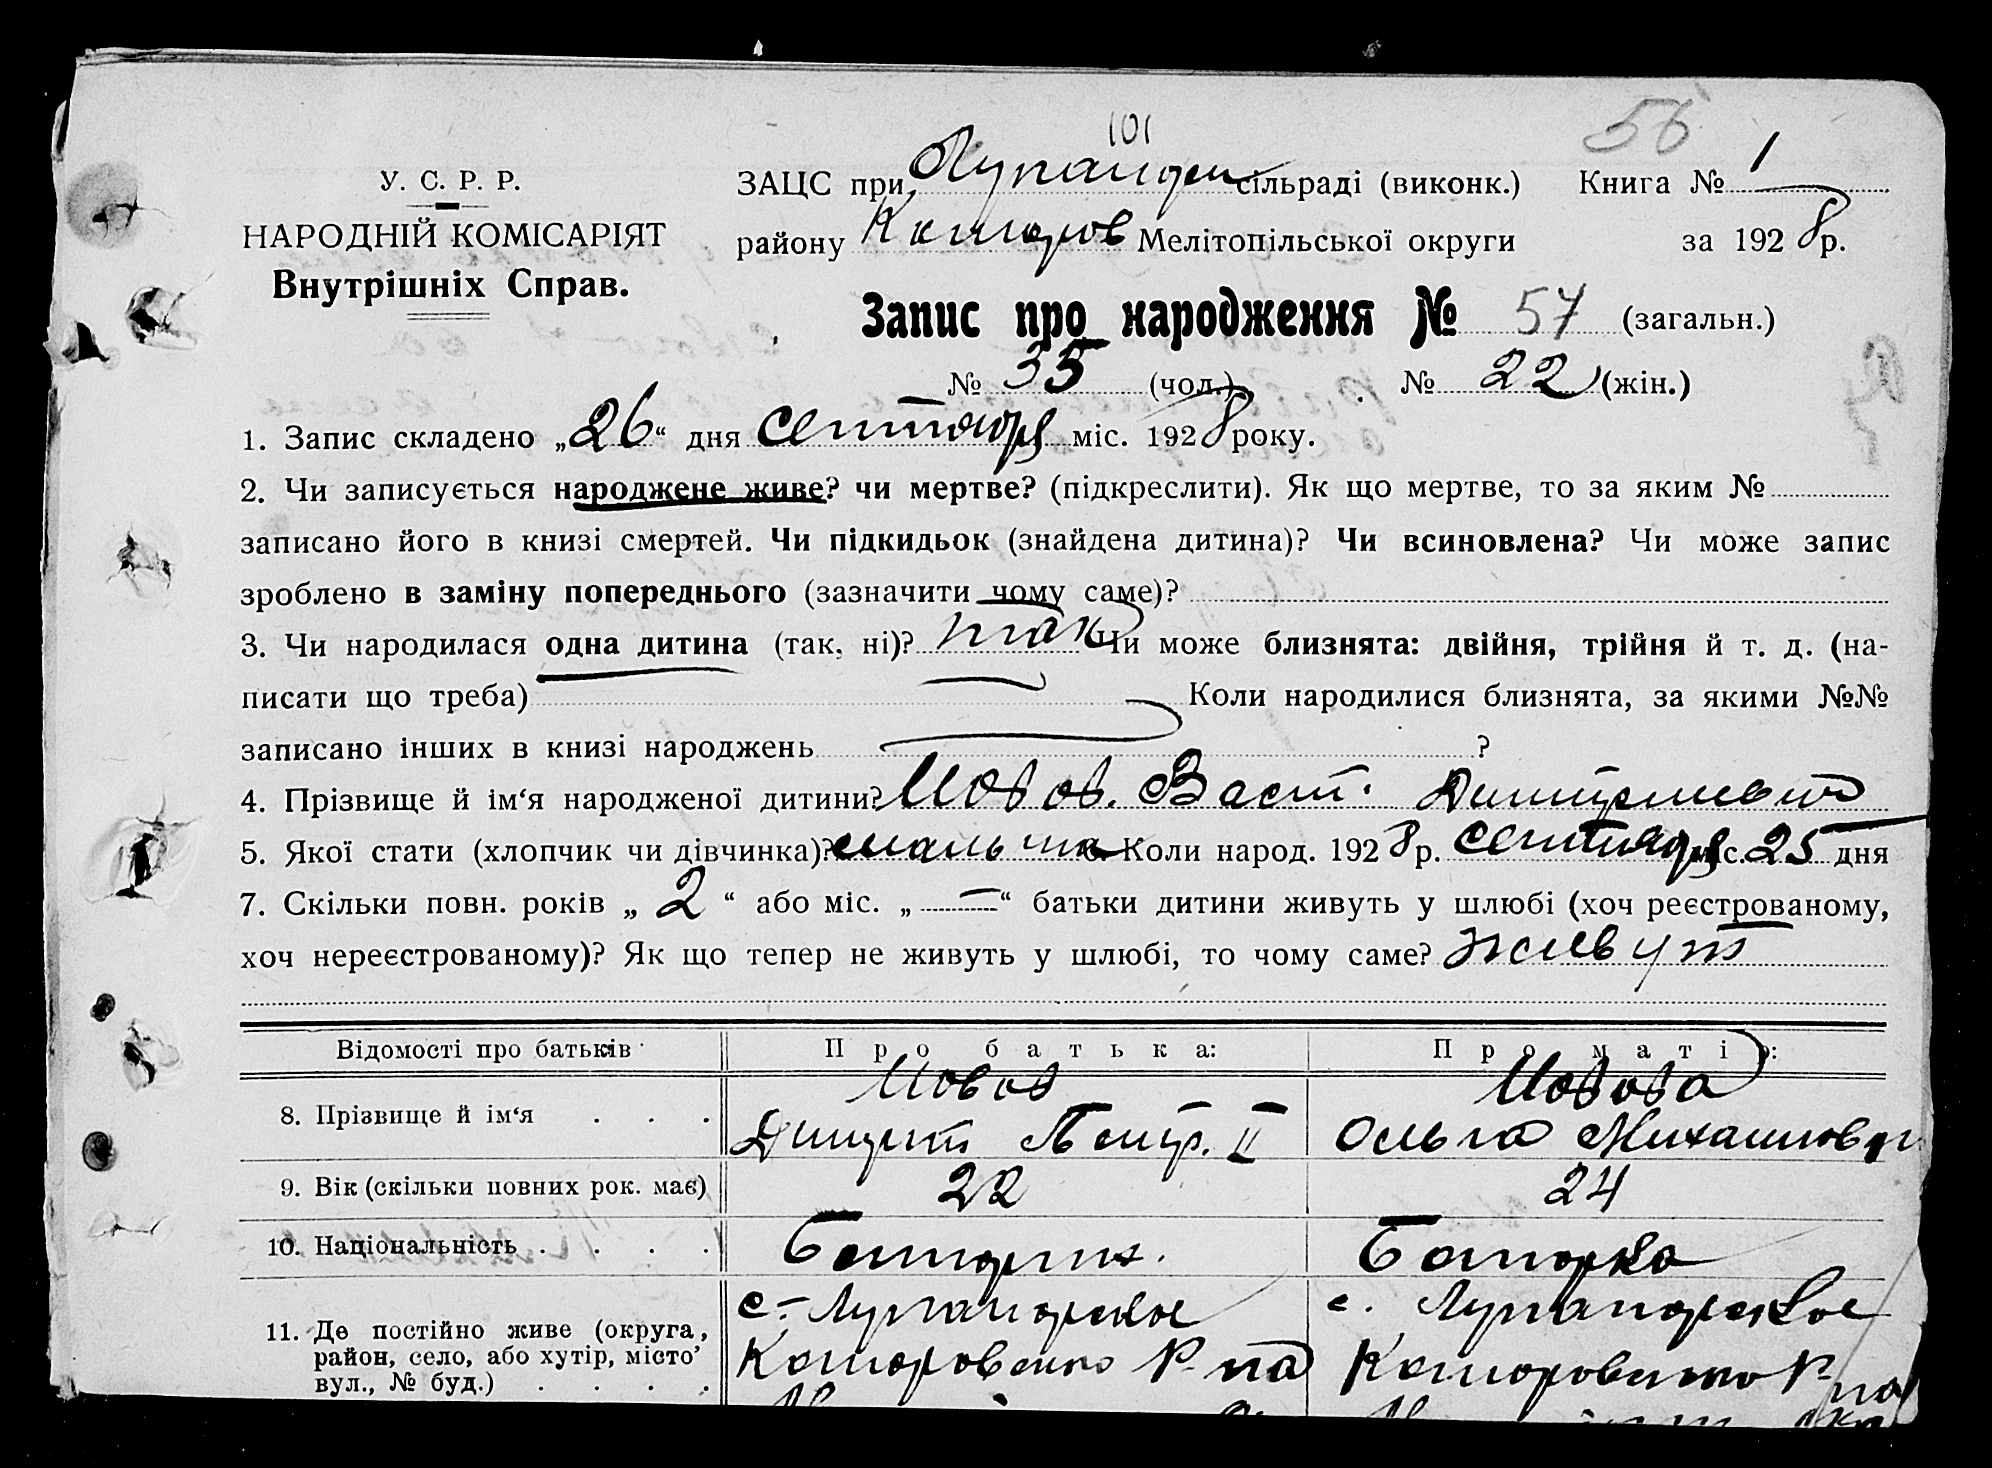 101
56
У. С. Р. Р.
НАРОДНІЙ КОМІСАРІЯТ
Внутрішніх Справ.
ЗАЦС при сільраді (виконк.) Книга № 1
району Мелітопільської округи за 1928 р.
Запис про народження № 57 (загальн.)
№ 35 (чол.) № 22 (жін.)
1. Запис складено „26“ дня сентября міс. 1928 року.
2. Чи записується народжене живе? чи мертве? (підкреслити). Як що мертве, то за яким №
записано його в книзі смертей. Чи підкидьок (знайдена дитина)? Чи всиновлена? Чи може запис
зроблено в заміну попереднього (зазначити чому саме)?
3. Чи народилася одна дитина (так, ні)? так Чи може близнята: двійня, трійня й т. д. (на-
писати що треба) Коли народилися близнята, за якими №№
записано інших в книзі народжень ?
4. Прізвище й ім‘я народженої дитини? Дмитриевич
5. Якої стати (хлопчик чи дівчинка)? мальчик Коли народ. 1928 р. сентября міс. 25 дня
7. Скільки повн. років „2“ або міс. „—“ батьки дитини живуть у шлюбі (хоч реєстрованому,
хоч нереєстрованому)? Як що тепер не живуть у шлюбі, то чому саме? живут
Відомості про батьків Про батька: Про матір:
8. Прізвище й ім‘я . . . Дмитрий Петр. II Ольга Михайловна
9. Вік (скільки повних рок. має) 22 24
10. Національність . . . . Болгарин. Болгарка
11. Де постійно живе (округа,
район, село, або хутір, місто’
вул., № буд.) . . . .
с.
с.